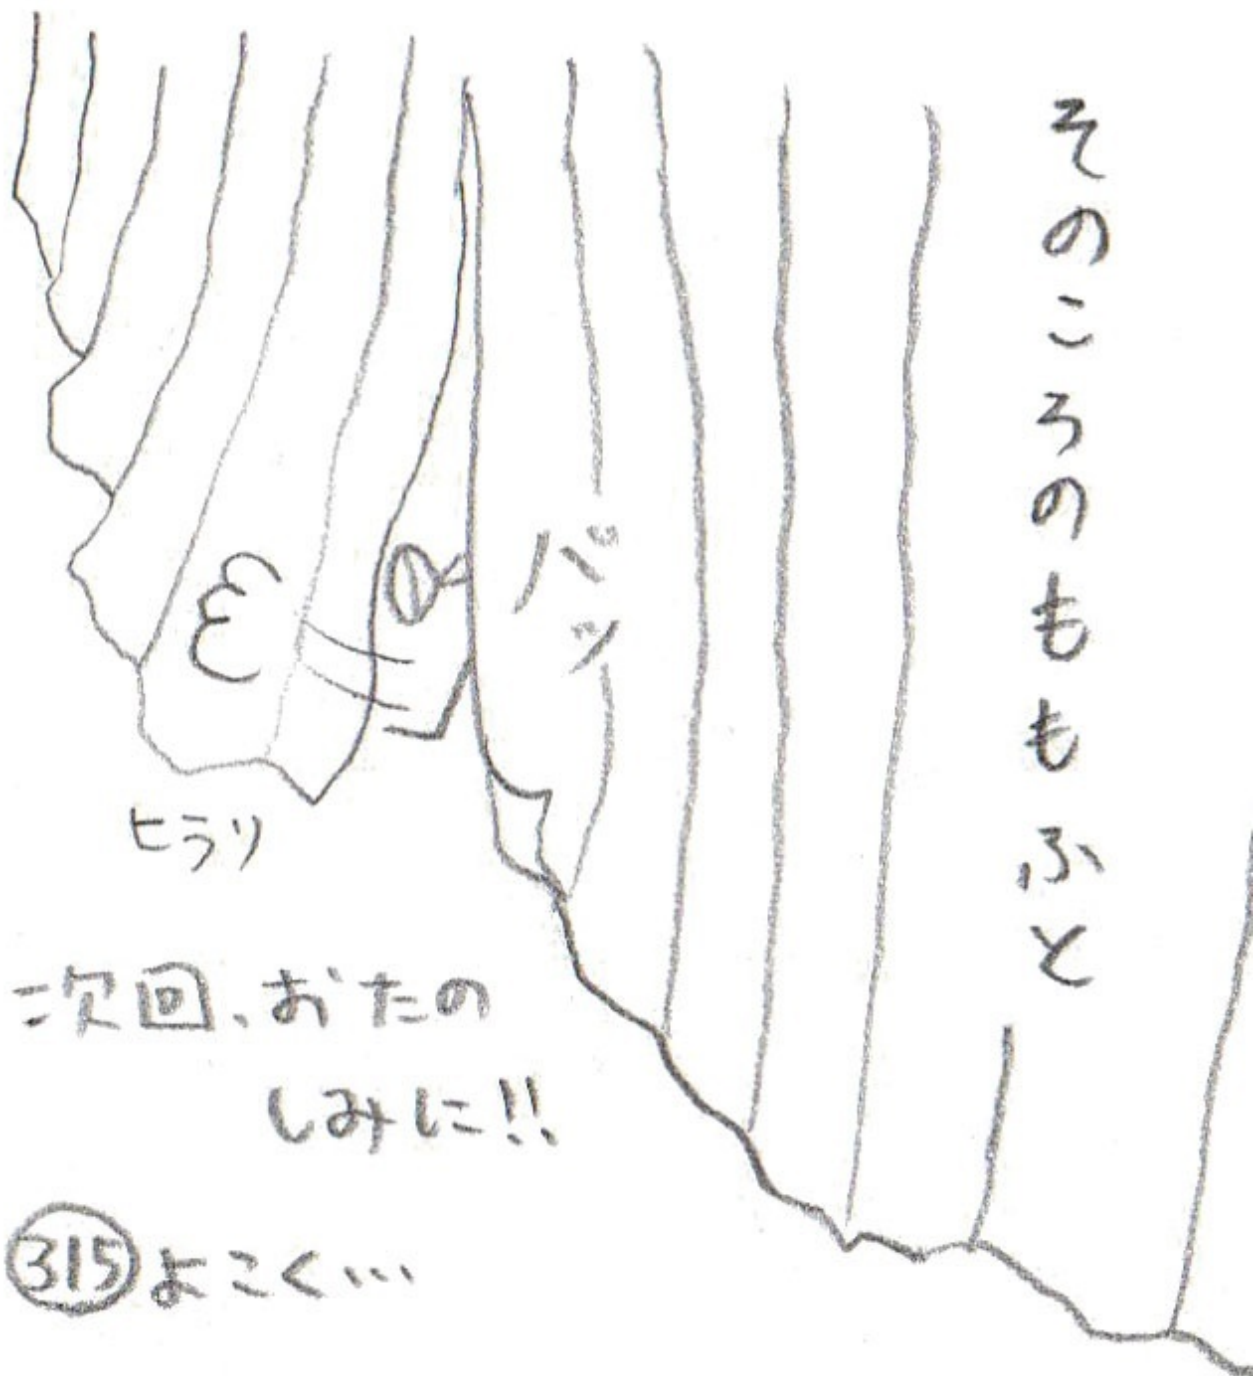 そのころのももふと
バッ
ヒラリ
次回、おたの
しみに!!
315 よこく…